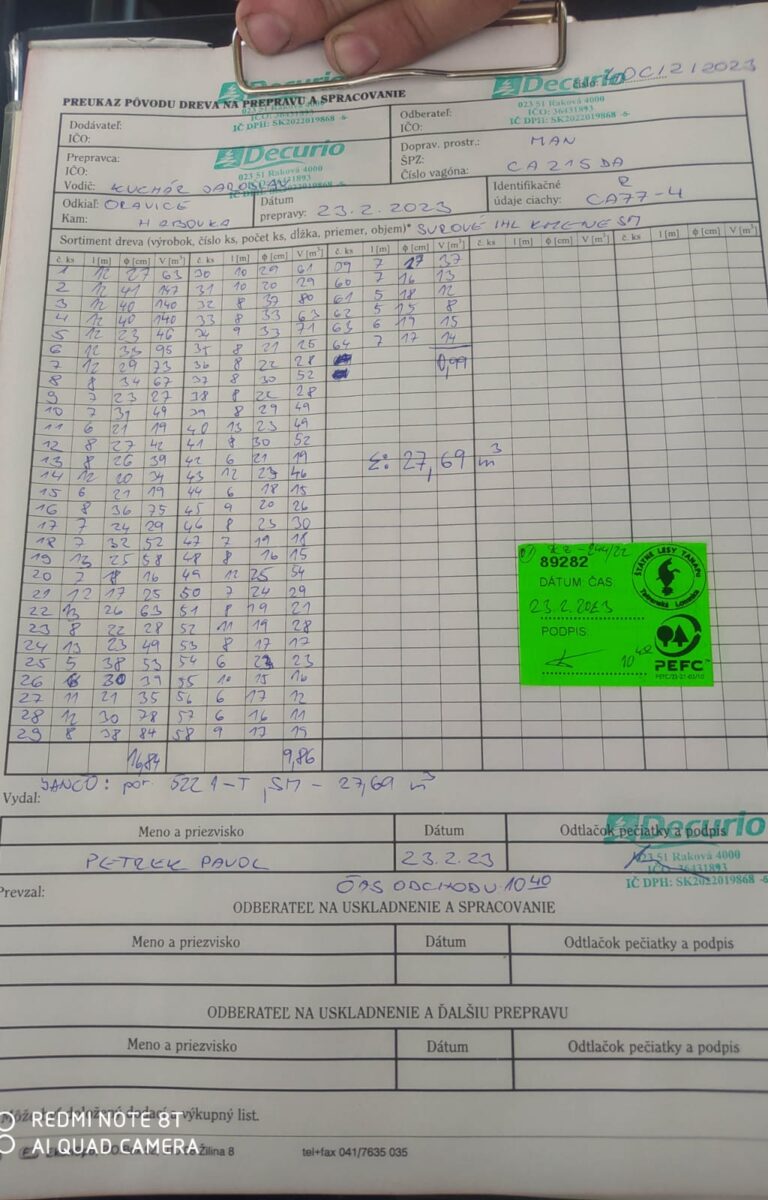 Decurio
023 51 Raková 4000
IČO: 36431893
IČ DPH: SK2022019868 -6-
Decurio
023 51 Raková 4000
IČO: 36431893
IČ DPH: SK2022019868 -6-
PREUKAZ PÔVODU DREVA NA PREPRAVU A SPRACOVANIE
Dodávateľ:
IČO:
Odberateľ:
IČO:
Decurio
023 51 Raková 4000
Prepravca:
IČO:
Vodič: KUCHÁR JAROSLAV
Doprav. prostr.: MAN
ŠPZ:
Číslo vagóna: CA 215 DA
Odkiaľ: ORAVICE
Kam: HABOVKA
Dátum
prepravy: 23.2.2023
Identifikačné
údaje ciachy: CA77-4
Sortiment dreva (výrobok, číslo ks, počet ks, dĺžka, priemer, objem)* SUROVÉ IHL KMENE SM
č. ks l [m] ϕ [cm] V [m³] č. ks l [m] ϕ [cm] V [m³] č. ks l [m] ϕ [cm] V [m³] č. ks l [m] ϕ [cm] V [m³] č. ks l [m] ϕ [cm] V [m³]
1 12 27 63 30 10 29 61 7 37
2 12 41 147 31 10 20 29 60 7 16 13
3 12 40 140 32 8 37 80 61 5 18 12
4 12 40 140 33 8 33 63 62 5 15 8
5 12 23 46 9 33 71 63 6 19 15
6 12 95 35 8 21 25 64 7 17 14
7 12 29 73 36 8 22 28 0,99
8 8 34 67 37 8 30 52
9 7 23 27 38 8 22 28
10 7 31 49 39 8 29 49
11 6 21 19 40 13 23 49
12 8 27 42 41 8 30 52
13 8 26 39 42 6 21 19 Σ: 27,69 m³
14 12 20 34 43 12 23 46
15 6 21 19 44 6 18 15
16 8 36 75 45 9 20 26
17 7 24 29 46 8 23 30
18 7 32 52 47 7 19 18
19 13 25 58 48 8 16 15
20 7 18 16 49 12 25 54
21 12 17 25 50 7 24 29
22 13 26 63 51 8 19 21
23 8 22 28 52 11 19 28
24 13 23 49 53 8 17 17
25 5 38 53 54 6 23 23
26 6 30 39 55 10 15 16
27 11 21 35 56 6 17 12
28 12 30 78 57 6 16 11
29 8 38 84 58 9 17 19
16,84 9,86
89282
DÁTUM ČAS:
23.2.2023
PODPIS
10 40
ŠTÁTNE LESY TANAPU
Tatranská Lomnica
PEFC
VANCO: por. 522 1-T, SM - 27,69 m³
Vydal:
Meno a priezvisko Dátum Odtlačok pečiatky a podpis
PETREK PAVOL 23.2.23
Decurio
023 51 Raková 4000
IČO: 36431893
IČ DPH: SK2022019868 -6
Prevzal:
ČAS ODCHODU 10 40
ODBERATEĽ NA USKLADNENIE A SPRACOVANIE
Meno a priezvisko Dátum Odtlačok pečiatky a podpis
ODBERATEĽ NA USKLADNENIE A ĎALŠIU PREPRAVU
Meno a priezvisko Dátum Odtlačok pečiatky a podpis
dodací a výkupný list.
REDMI NOTE 8T
AI QUAD CAMERA
Žilina 8
tel+fax 041/7635 035